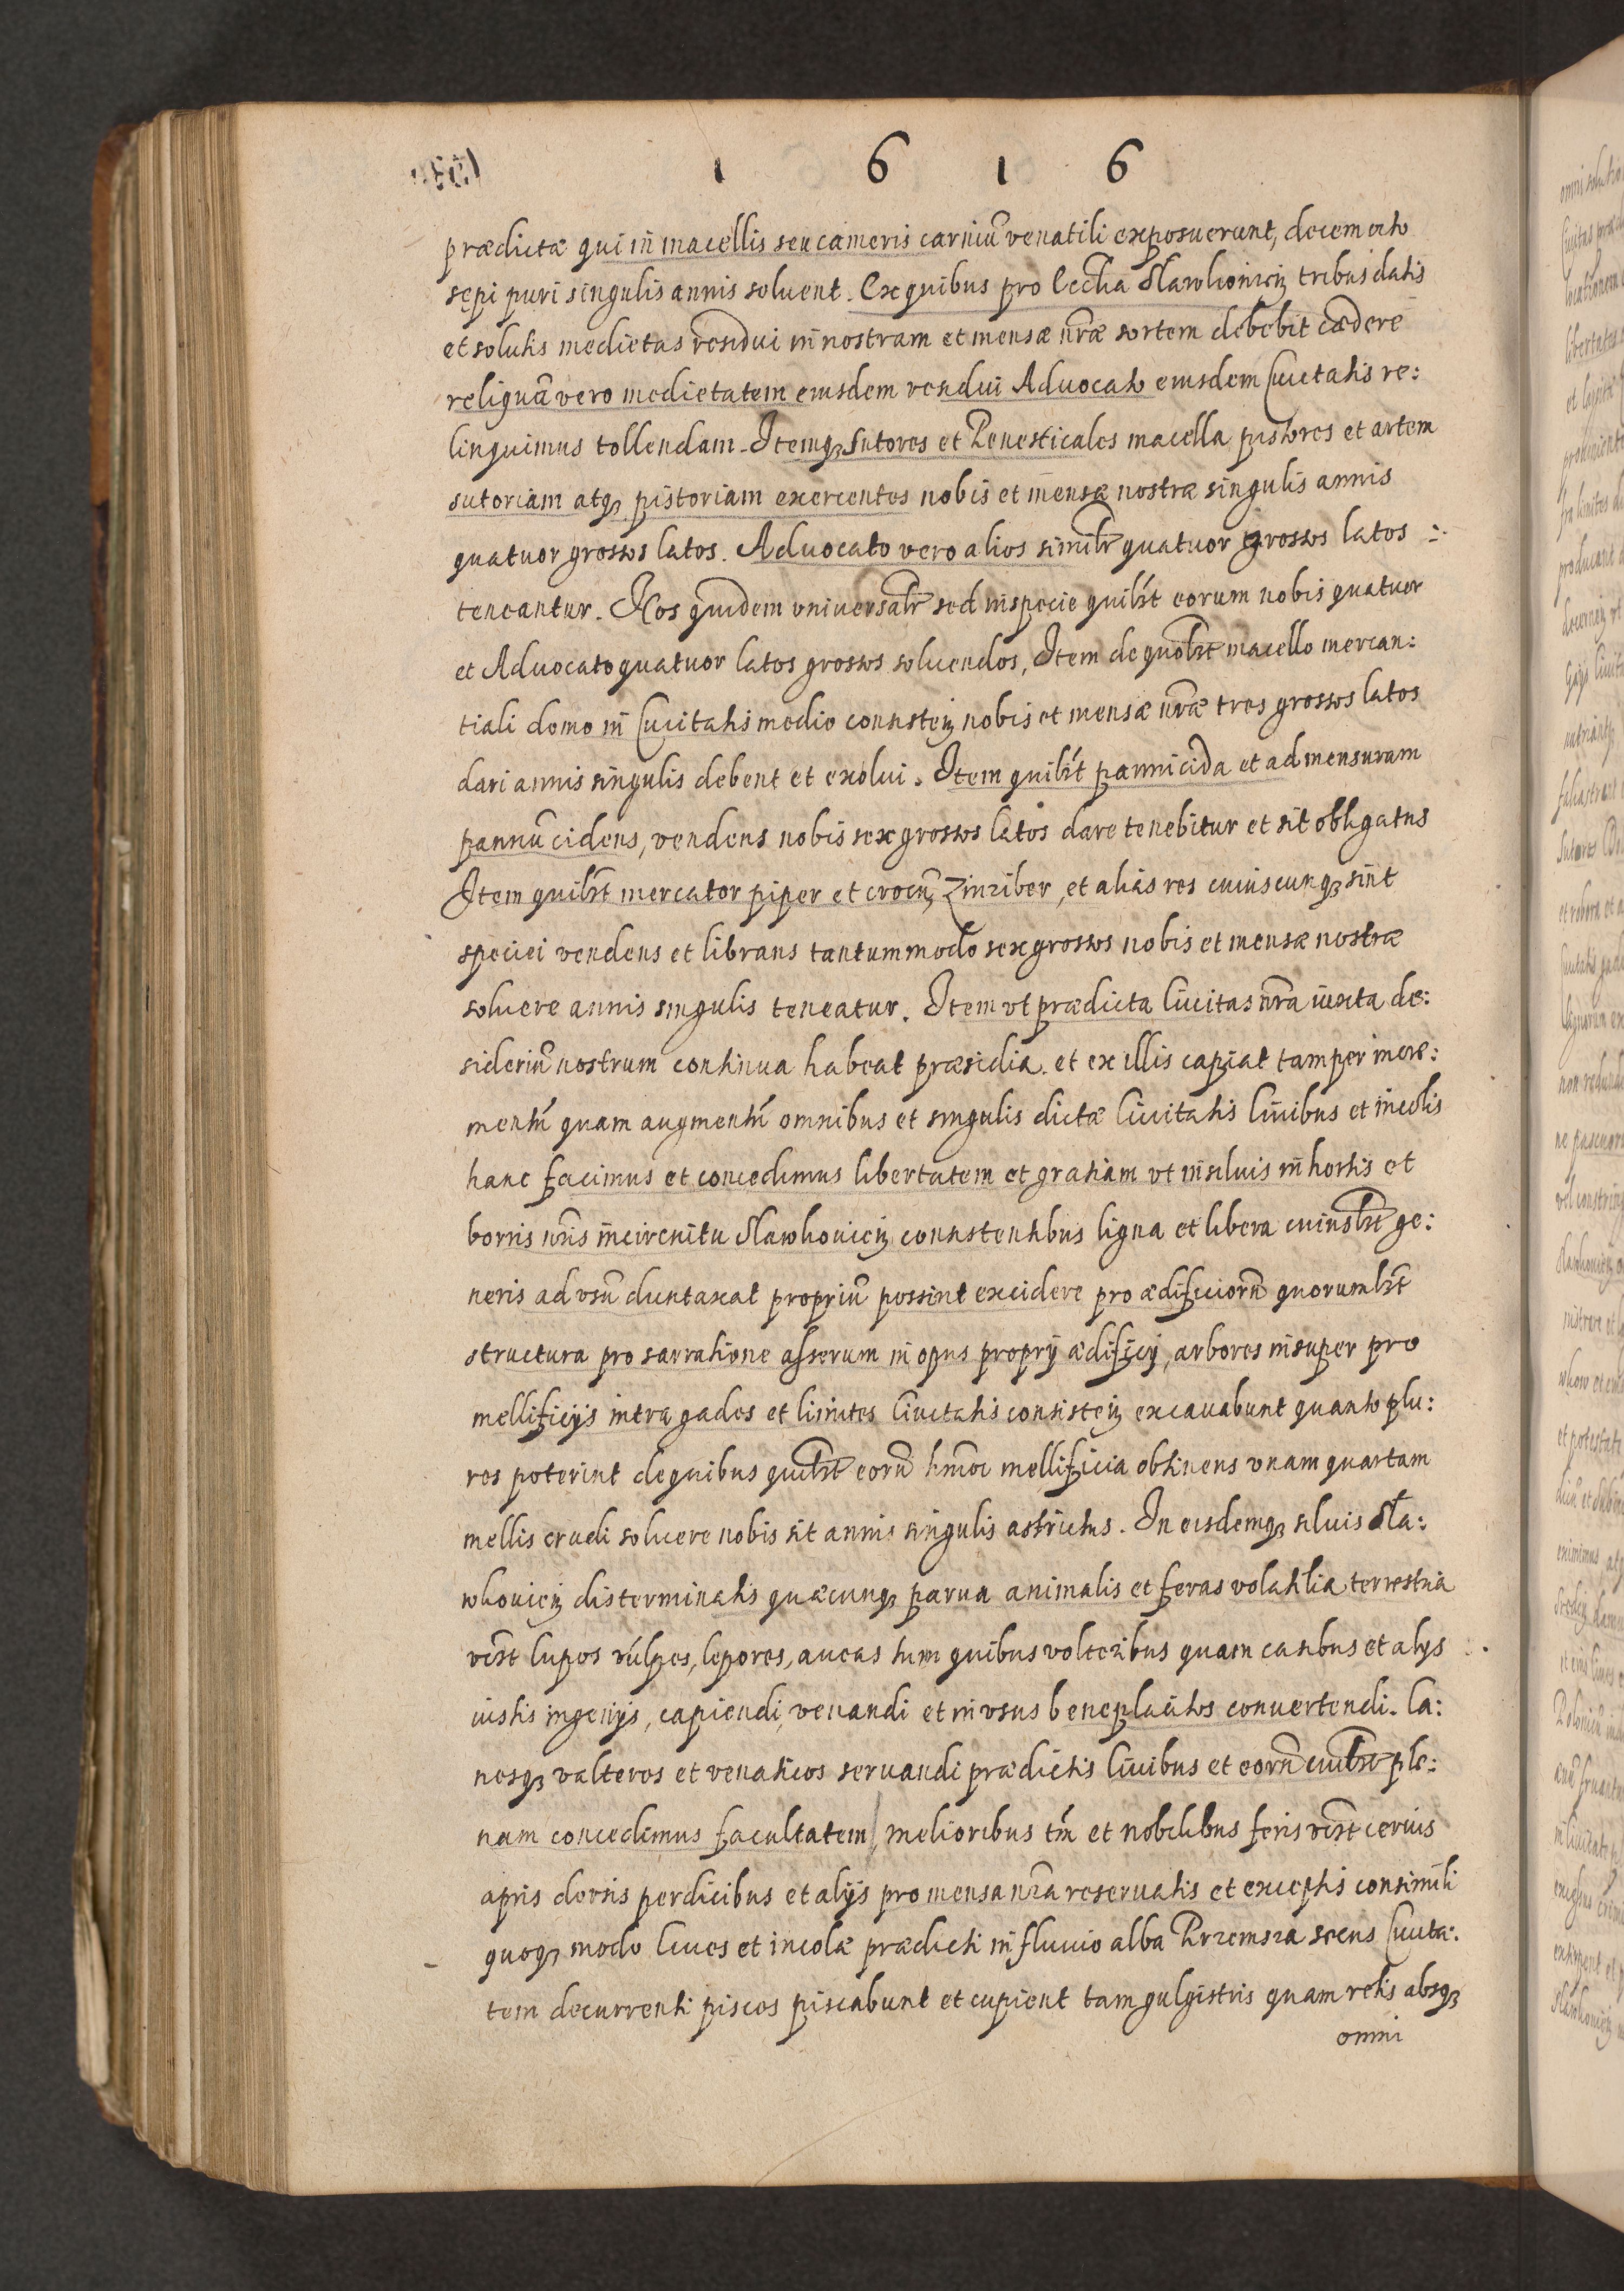 1 6 1 6
prædictæ qui in macellis seu cameris carniũ venatili exposuerunt, decem octo
sepi puri singulis annis soluent. Ex quibus pro Ecclia Slawkouien tribus datis
et solutis medietas residui in nostram et mensæ nr̃æ sortem debebit cædere
reliquã vero medietatem eiusdem residui Aduocato eiusdem Ciuitatis re:
linquimus tollendam. Itemq sutores et Penesticales macella pistores et artem
sutoriam atq pistoriam exercentes nobis et mensæ nostræ singulis annis
quatuor grossos latos. Aduocato vero alios similr quatuor grossos latos
teneantur. Nos quidem vniuersalr sed inspecie quilibt eorum nobis quatuor
et Aduocato quatuor latos grossos soluendos, Item de quolibt macello mercan:
tiali domo in Ciuitatis medio consisten nobis et mensæ nr̃æ tres grossos latos
dari annis singulis debent et exolui. Item quilibt pannicida et ad mensuram
pannũ cidens, vendens nobis sex grossos latos dare tenebitur et sit obligatus
Item quilibt mercator piper et crocũ, Zinziber, et alias res cuiuscunq sint
speciei vendens et librans tantummodo sex grossos nobis et mensæ nostræ
soluere annis singulis teneatur. Item vt prædicta Ciuitas nr̃a iuxta de:
sideriũ nostrum continua habeat præsidia et ex illis capiat tam per incre:
mentũ quam augmentũ omnibus et singulis dictæ Ciuitatis Ciuibus et incolis
hanc facimus et concedimus libertatem et gratiam vt in siluis in hortis et
borris nr̃is in circuitu Slawkouien consistentibus ligna et libera cuiuslibt ge:
neris ad vsũ duntaxat propriũ possint excidere pro ædificiorũ quorumlibt
structura pro sarratione asserum in opus proprij ædificij, arbores insuper pro
mellificijs intra gades et limites Ciuitatis consisten excauabunt quanto plu:
res poterint de quibus quilibt eorũ hm̃oi mellificia obtinens vnam quartam
mellis crudi soluere nobis sit annis singulis astrictus. In eisdemq siluis Sla:
wkouien disterminatis quæcunq parua animalis et feras volatilia terrestria
vi[delice]t lupos vulpes, lepores, aucas tum quibus volteribus quam canibus et alijs
iustis ingenijs, capiendi, venandi et in vsus beneplacitos conuertendi. Ca:
nesq valteros et venaticos seruandi prædictis Ciuibus et eorũ cuilibt ple:
nam concedimus facultatem, melioribus tñ et nobilibus feris vclt ceruis
apris dorsis perdicibus et alijs pro mensa nr̃a reseruatis et exceptis consimili
quoq modo Ciues et incolæ prædicti in fluuio alba Przemsza secus Ciuita:
tem decurrenti pisces piscabunt et cupient tam gulgistris quam retis absq
omni